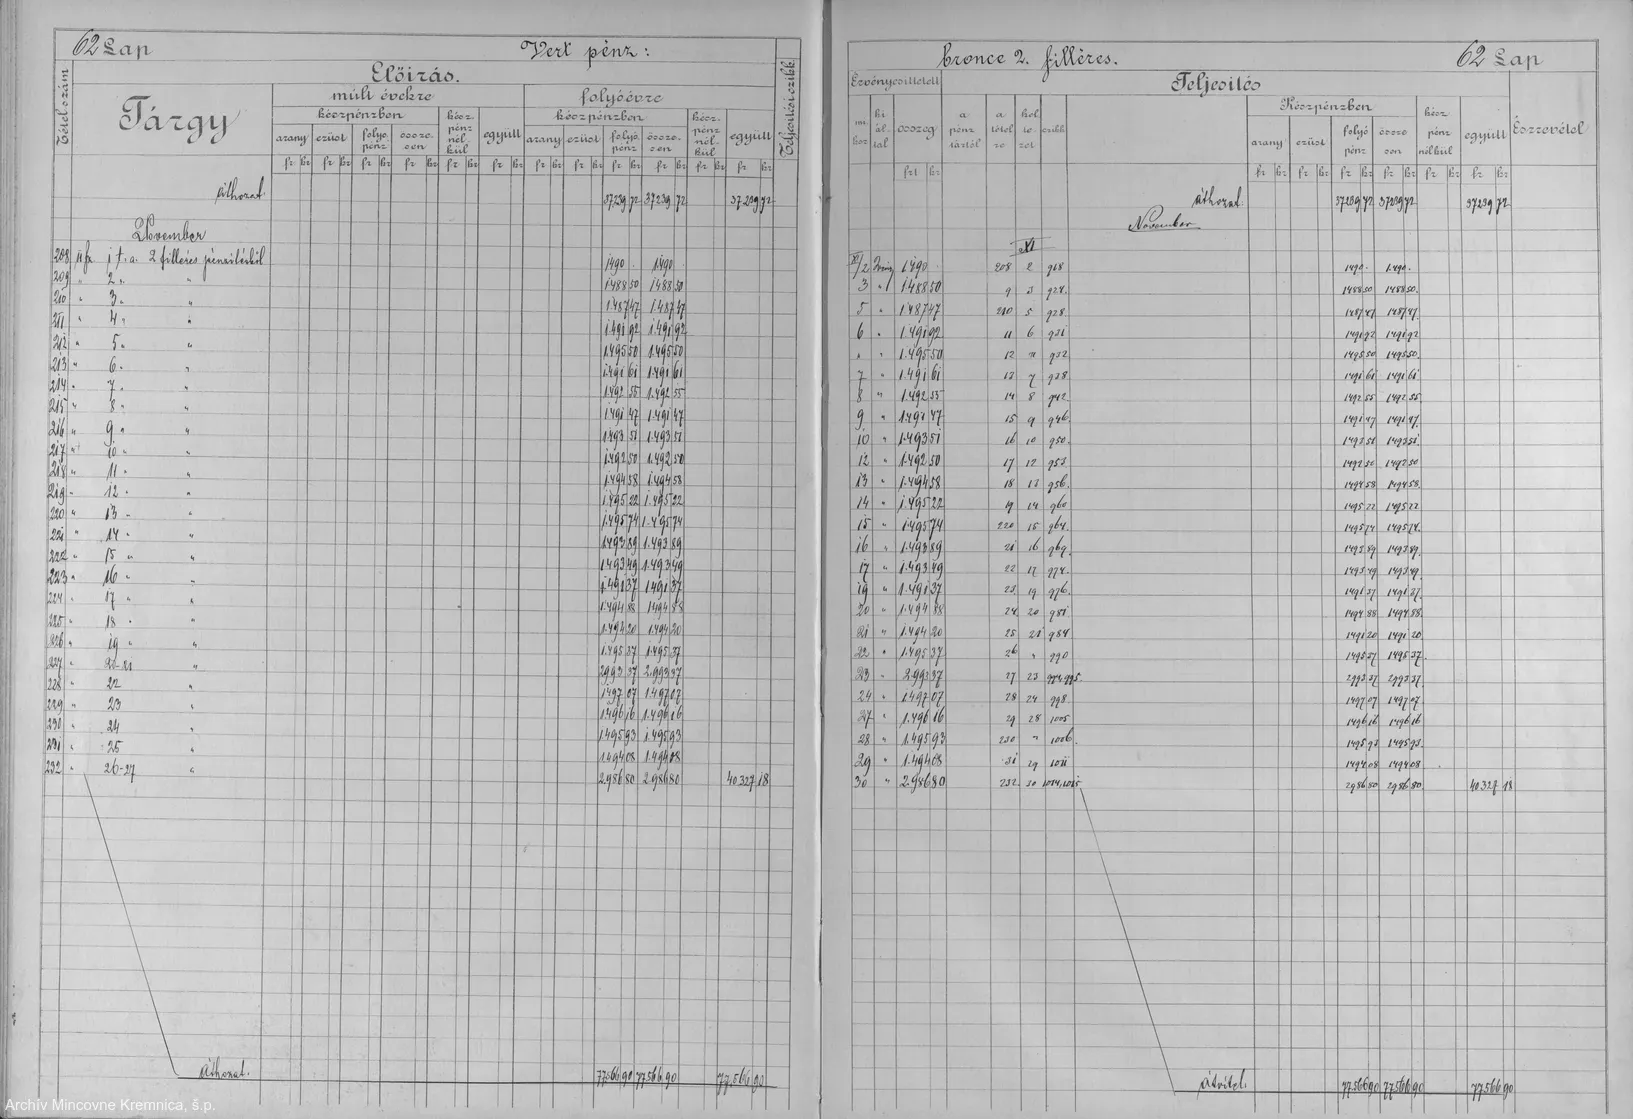 62 Lap
Vert pénz:
Tételszám
Előirás.
Teljesitési czikk
Tárgy
múlt évekre
folyóévre
készpénzben
kész. pénz nélkül
együtt
készpénzben
kész. pénz nélkül
együtt
arany ezüst folyó pénz össze. sen
arany ezüst folyó. pénz össze. sen
fr kr fr kr fr kr fr kr fr kr fr kr fr kr fr kr fr kr fr kr fr kr fr kr
áthozat 37239 72 37239 72 37239 72
November
208 1 2 filléres 1490 . 1.490 .
209 " 2 " " 1488 50 1488 50
210 " 3 " " 1487 47 1.487 47
211 " 4 " " 1.491 92 1.491 92
212 " 5 " " 1.495 50 1.495 50
213 " 6 " " 1.491 61 1.491 61
214 " 7 " " 1.492 55 1.492 55
215 " 8 " " 1.491 47 1.491 47
216 " 9 " " 1.493 51 1.493 51
217 " 10 " " 1.492 50 1.492 50
218 " 11 " " 1.494 58 1.494 58
219 " 12 " " 1.495 22 1.495 22
220 " 13 " " 1.495 74 1.495 74
221 " 14 " " 1493 89 1.493 89
222 " 15 " " 1.493 49 1.493 49
223 " 16 " " 1.491 37 1491 37
224 " 17 " " 1.494 88 1494 88
225 " 18 " " 1.494 20 1.494 20
226 " 19 " " 1.495 37 1.495 37
227 " 20-21 " 2993 37 2.993 37
228 " 22 " 1497 07 1.497 07
229 " 23 " 1.496 16 1.496 16
230 " 24 " 1495 93 1.495 93
231 " 25 " 1494 08 1.494 08
232 " 26-27 " 2986 80 2986 80 40327 18
áthozat. 77566 90 77566 90 77.566 90
bronce 2. filléres.
62 Lap
Érvényesittetett
Teljesités
mikor
ki által
összeg
a pénztártól
a tételre
czikk
Készpénzben
kész pénz nélkül
együtt
Észrevétel
arany ezüst folyó pénz össze sen
frt kr fr kr fr kr fr kr fr kr fr kr fr kr
áthozat 37239 72 37239 72 37239 72
November
XI
2 1.490 . 208 2 918 1490 . 1.490 .
3 " 1.488 50 9 3 924. 1488 50 1488 50.
5 " 1.487 47 210 5 928 1487 47 1487 47.
6 " 1.491 92 11 6 931 1491 92 1491 92
" " 1.495 50 12 " 932 1495 50 1495 50.
7 " 1.491 61 13 7 938 1491 61 1491 61
8 " 1.492 55 14 8 942. 1492 55 1492 55
9 " 1.491 47 15 9 946. 1491 47 1491 47.
10 " 1.493 51 16 10 950. 1493 51 1493 51
12 " 1.492 50 17 12 953 1492 50 1492 50
13 " 1.494 58 18 13 956. 1494 58 1494 58.
14 " 1.495 22 19 14 960 1495 22 1495 22
15 " 1.495 74 220 15 964. 1495 74 1495 74.
16 " 1.493 89 21 16 969. 1493 89 1493 89.
17 " 1.493 49 22 17 974. 1493 49 1493 49.
19 " 1.491 37 23 19 976. 1491 37 1491 37.
20 " 1.494 88 24 20 981 1494 88 1494 88.
21 " 1.494 20 25 21 984 1491 20 1491 20
22 " 1.495 37 26 " 990 1495 37 1495 37.
23 " 2.993 37 27 23 994,995. 2993 37 2993 37
24 " 1.497 07 28 24 998. 1497 07 1497 07
27 " 1.496 16 29 28 1005 1496 16 1496 16
28 " 1.495 93 230 " 1006. 1495 93 1495 93.
29 " 1.494 08 31 29 1011 1494 08 1494 08
30 " 2.986 80 232 30 1014,1015 2986 80 2986 80. 40327 18
átvitel. 77566 90 77566 90 77566 90
Archív Mincovne Kremnica, š.p.